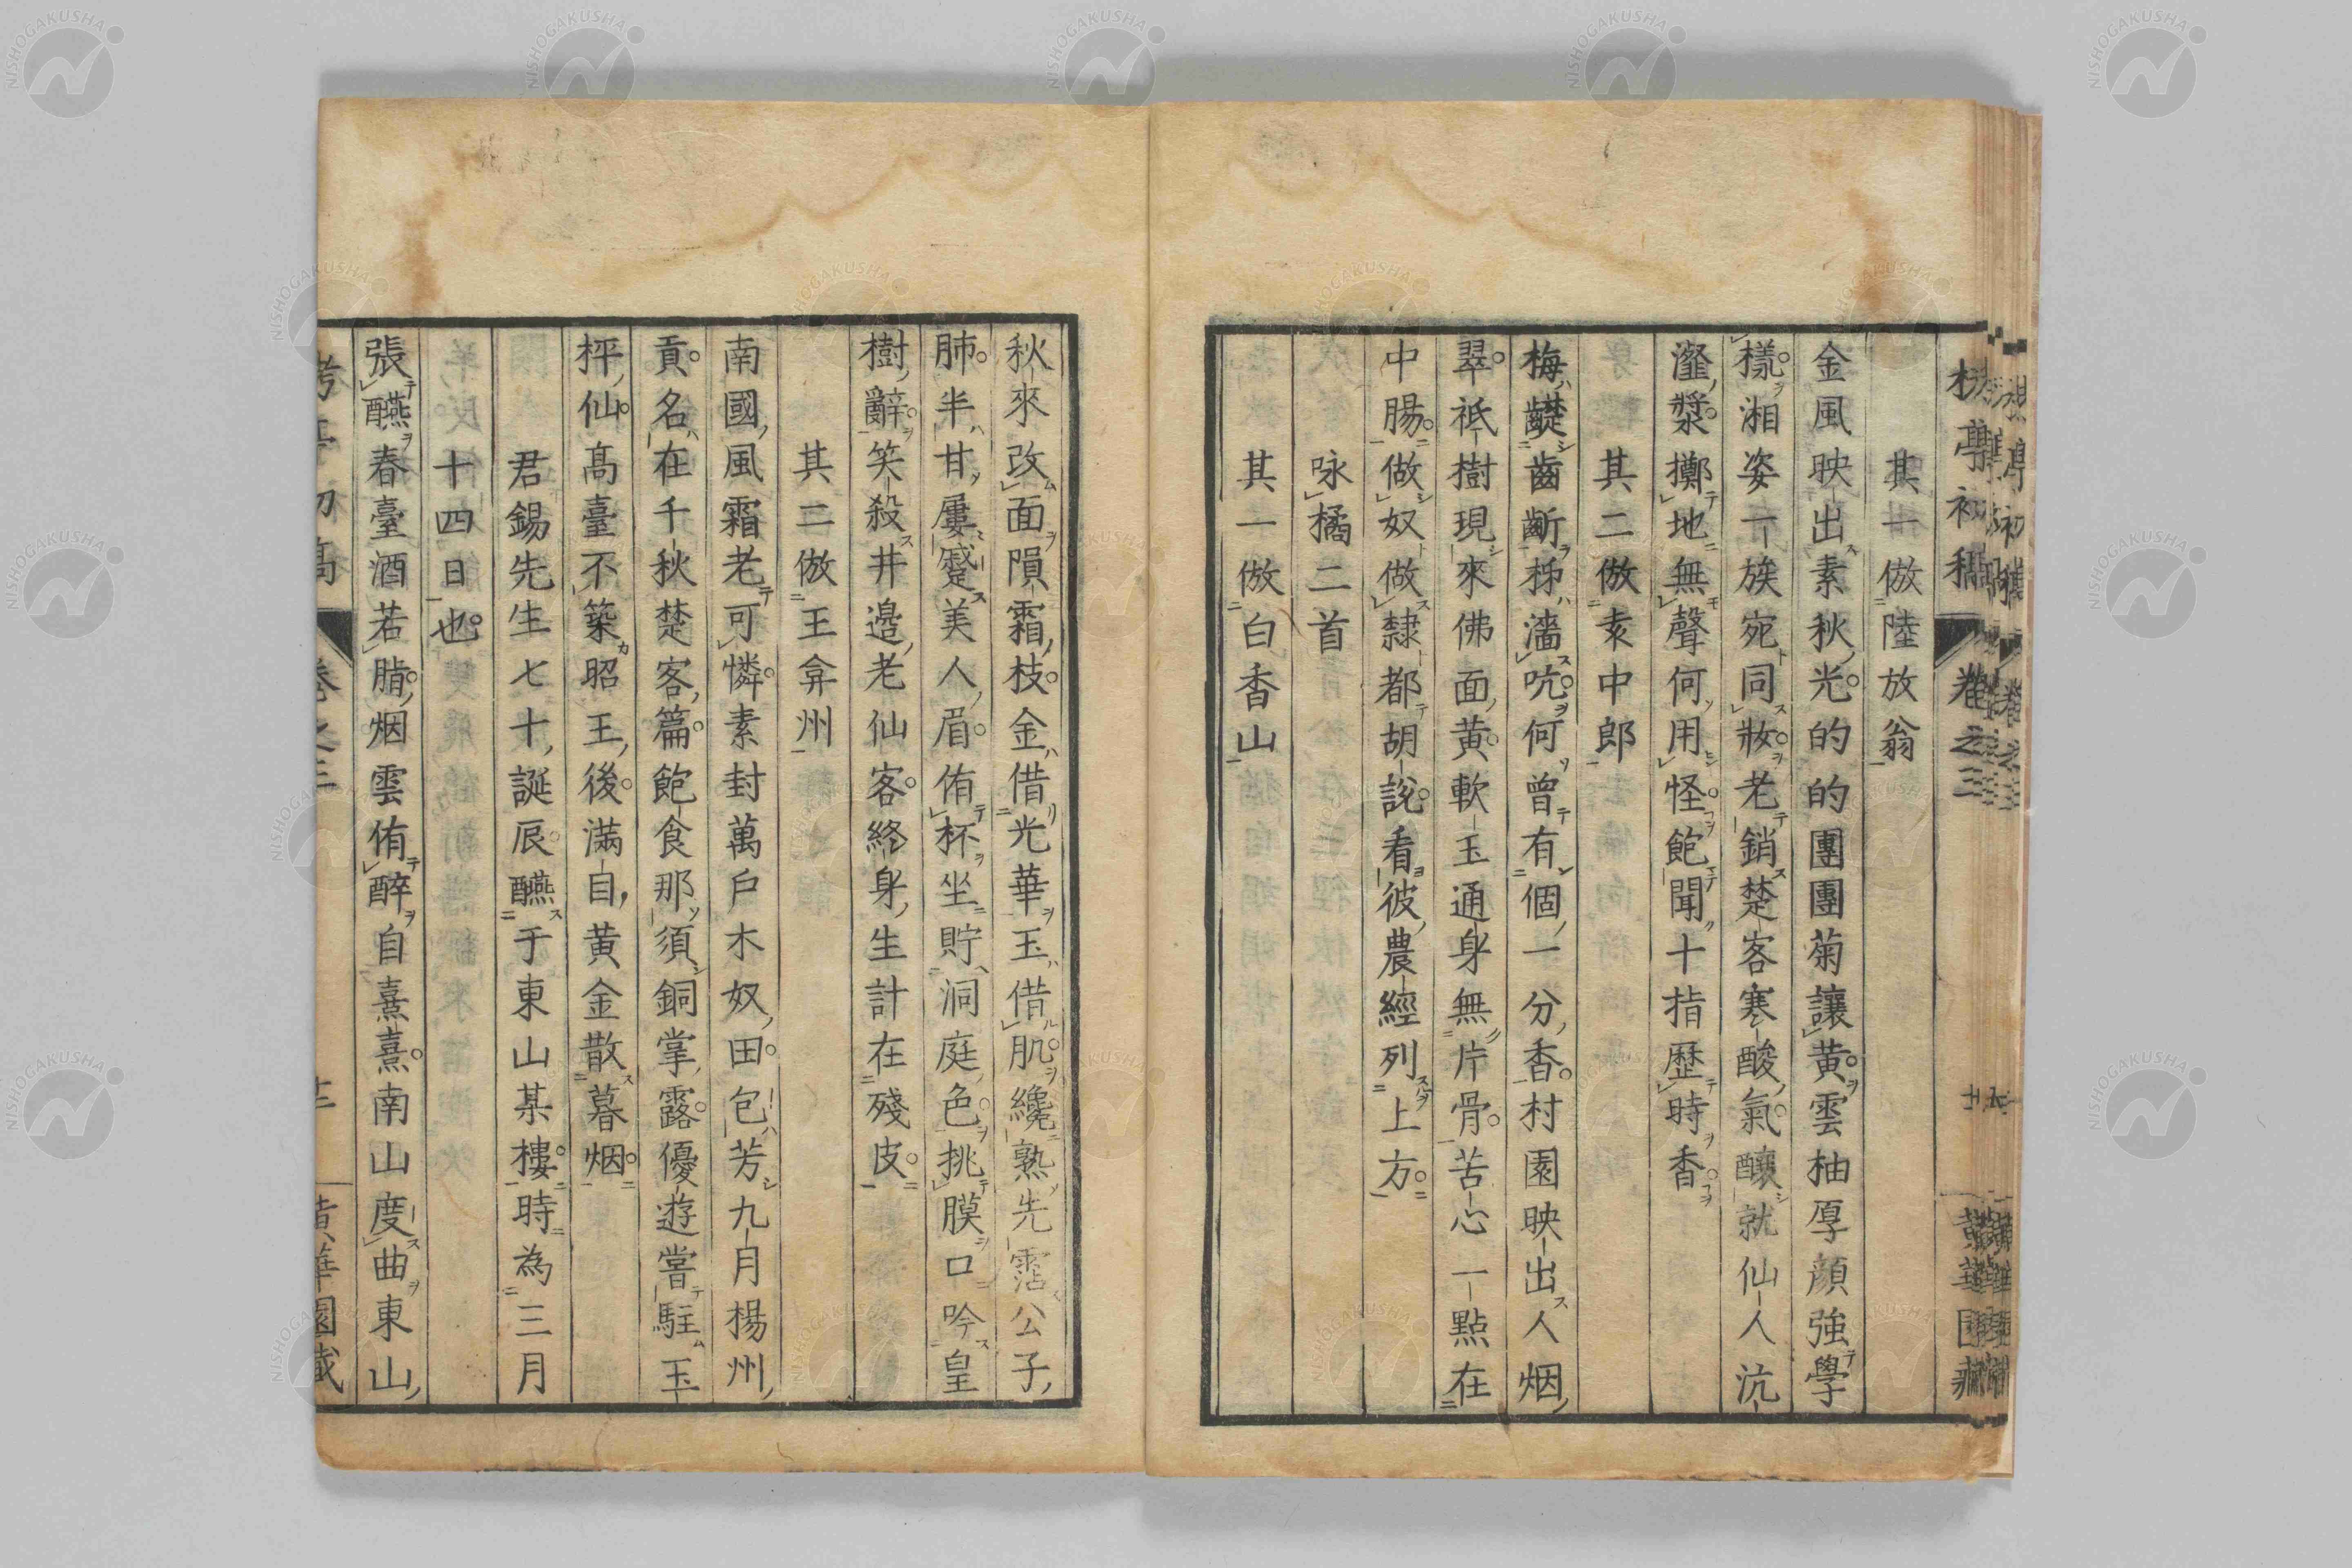 其一倣陸放翁
金風映出素秋光的的團團菊讓黃雲柚厚顔強學
樣湘姿一族宛同妝老銷楚客寒酸氣釀就仙人沆
瀣漿擲地無聲何用怪飽聞十指歷時香
其二倣袁中郎
梅齼齒齗柹濇吭何曾有個一分香村園映出人烟
翠祗樹現來佛面黃軟玉通身無片骨苦心一點在
中腸做奴做隸都胡說看彼農經列上方
咏橘二首
其一倣白香山
秋來改面隕霜枝金借光華玉借肌纔熟先霑公子
肺半甘屢蹙美人眉侑杯坐貯洞庭色挑膜口吟皇
樹辭笑殺井邊老仙客終身生計在殘皮
其二倣王弇州
南國風霜老可憐素封萬户木奴田包芳九月楊州
貢名在千秋楚客篇飽食那須銅掌露優遊嘗駐玉
枰仙高臺不築昭王後滿目黃金散暮烟
君錫先生七十誕辰醼于東山某樓時為三月
十四日也
張醼春臺酒若脂烟雲侑醉自熹熹南山度曲東山
卷之三
黃華園藏
NISHOGAKUSHA